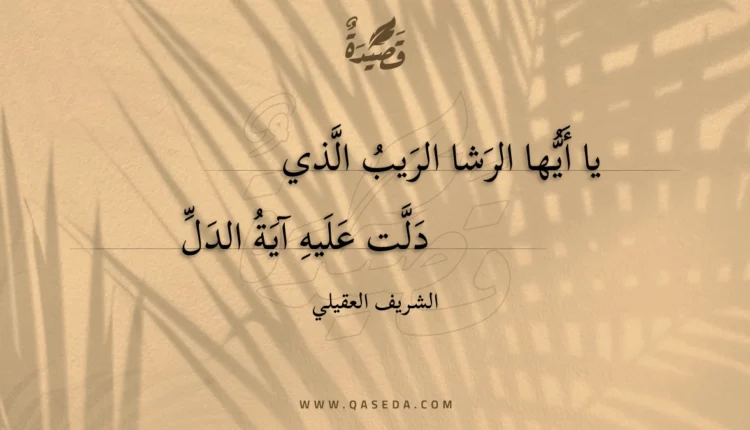 قَصِيدَةٌ
يا أَيُّها الرَشا الرَيبُ الَّذي
دَلَّت عَلَيهِ آيَةُ الدَلِّ
الشريف العقيلي
WWW.QASEDA.COM